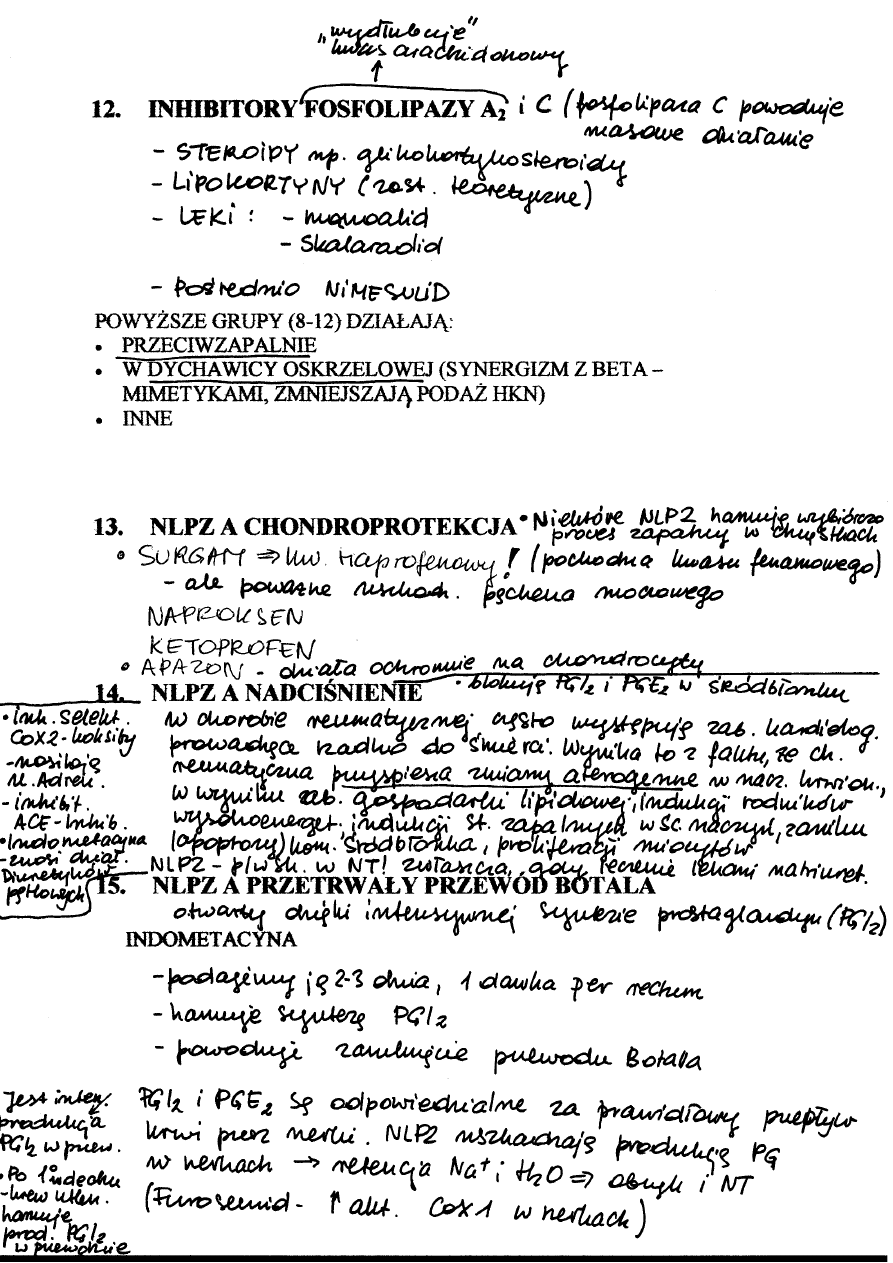 „wydłubuje"
kwas arachidonowy
12. INHIBITORY FOSFOLIPAZY A2 i C (fosfolipaza C powoduje
masowe działanie
- STEROIDY np. glikokortykosteroidy
- LIPOKORTYNY (zast. teoretyczne)
- LEKI: - manoalid
- Skalaradid
- Pośrednio NIMESULID
POWYŻSZE GRUPY (8-12) DZIAŁAJĄ:
• PRZECIWZAPALNIE
• W DYCHAWICY OSKRZELOWEJ (SYNERGIZM Z BETA –
MIMETYKAMI, ZMNIEJSZAJĄ PODAŻ HKN)
• INNE
13. NLPZ A CHONDROPROTEKCJA • Niektóre NLPZ hamują wybiórczo
proces zapalny w chrząstkach
• SURGAM ⇒ kw. tiaprofenowy! (pochodna kwasu fenamowego)
- ale poważne uszkodz. pęcherza moczowego
NAPROKSEN
KETOPROFEN
• APAZON - działa ochronnie na chondrocyty
14. NLPZ A NADCIŚNIENIE • blokuje PGI2 i PGE2 w śródbłonku
• Inh. selekt.
COX2-koksiby
- nasilają
ukł. Adren.
- inhibit.
ACE-Inhib.
• Indometacyna
- znosi dział.
Diuretyków
pętlowych
W chorobie reumatycznej często występują zab. kardiolog.
prowadzące rzadko do śmierci. Wynika to z faktu, że ch.
reumatyczna przyspiesza zmiany aterogenne w nacz. krwion.,
w wyniku zab. gospodarki lipidowej, indukcji rodników
wysokoenerget. indukcji st. zapalnych w śc. naczyń, zaniku
(apoptozy) kom. śródbłonka, proliferacji miocytów
NLPZ - p/wsk. w NT! zwłaszcza, gdy leczenie lekami natriuret.
15. NLPZ A PRZETRWAŁY PRZEWÓD BOTALA
otwarty dzięki intensywnej syntezie prostaglandyn (PGI2)
INDOMETACYNA
- podajemy ją 2-3 dnia, 1 dawka per rectum
- hamuje syntezę PGI2
- powoduje zamknięcie przewodu Botala
Jest inten.
produkcja
PGI2 w przew.
• Po 1 wdechu
- krew utlen.
hamuje
prod. PGI2
w przewodzie
PGI2 i PGE2 są odpowiedzialne za prawidłowy przepływ
krwi przez nerki. NLPZ uszkadzają produkcję PG
w nerkach → retencja Na+ i H2O ⇒ obrzęk i NT
(Furosemid - ↑ akt. COX1 w nerkach)